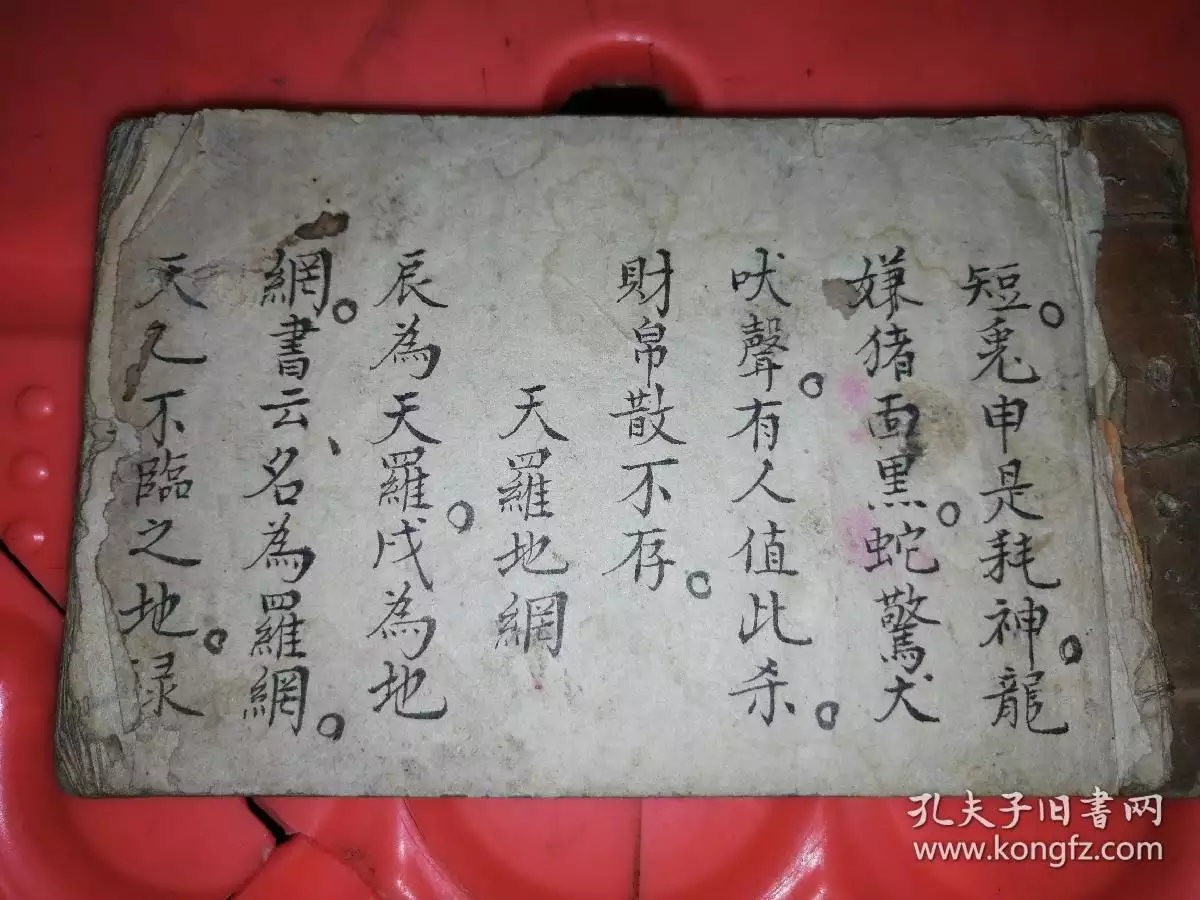 短。兎申是耗神。龍
嫌猪面黒。蛇驚犬
吠聲。有人值比杀。
財帛散不存。
天羅地網
辰為天羅。戌為地
網。書云、名為羅網。
天乙不臨之地。录
孔夫子旧书网
www.kongfz.com